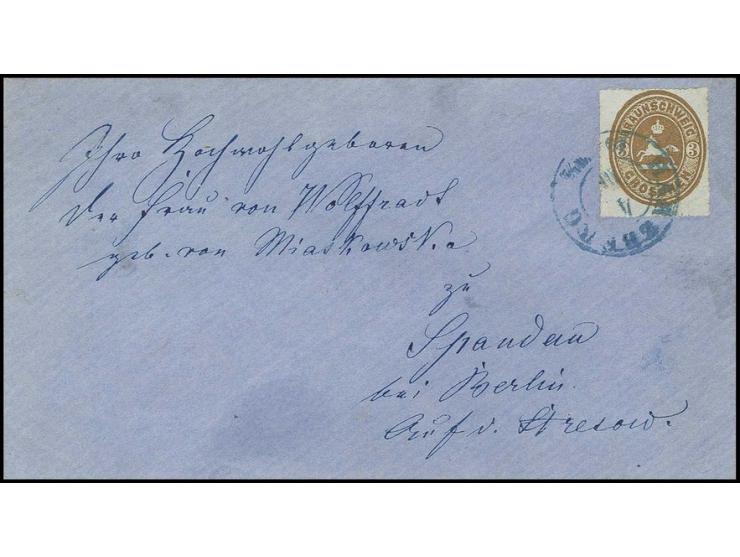 Ihro Hochwohlgeboren
der Frau von Wolffradt
geb. von Miaskowska
zu
Spandau
bei Berlin.
Auf d. Stresow.
BRAUNSCHWEIG
3 3
GROSCHEN